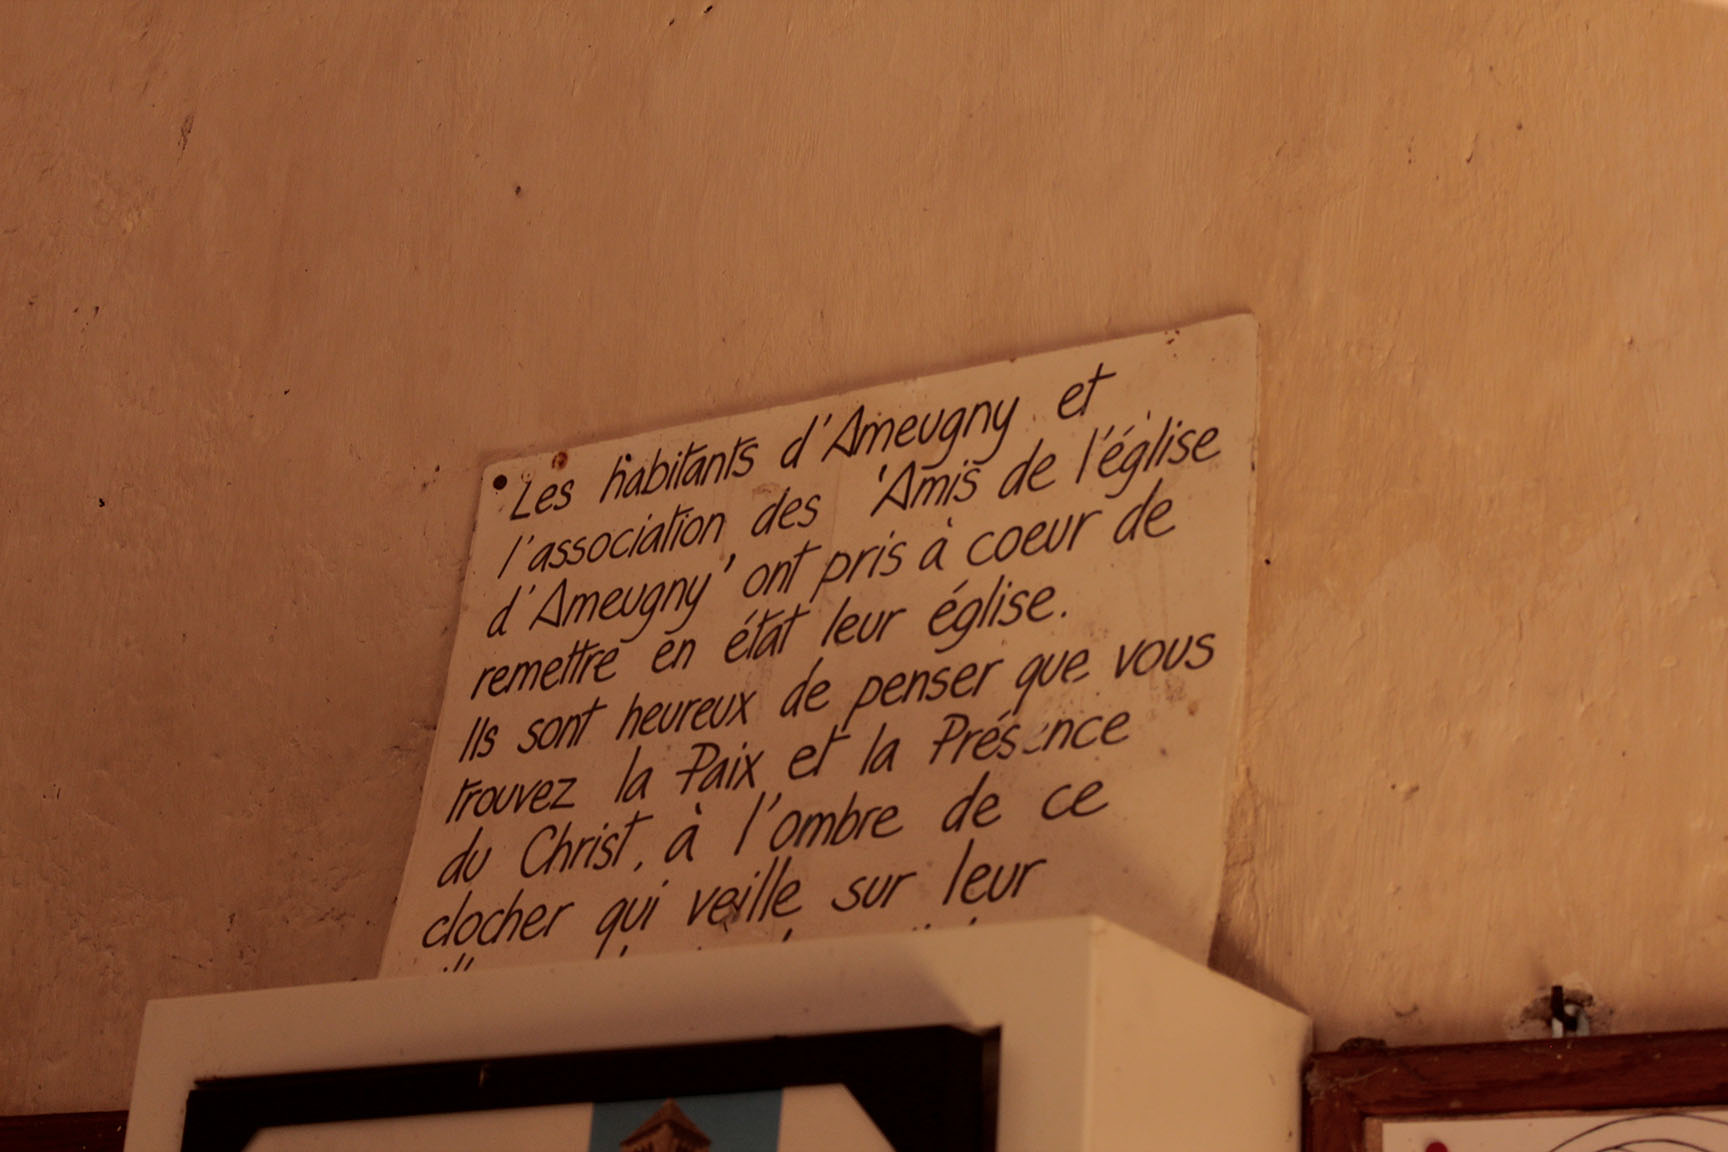 Les habitants d'Ameugny et
l'association des 'Amis de l'église
d'Ameugny' ont pris à coeur de
remettre en état leur église.
Ils sont heureux de penser que vous
trouvez la Paix et la Présence
du Christ, à l'ombre de ce
clocher qui veille sur leur